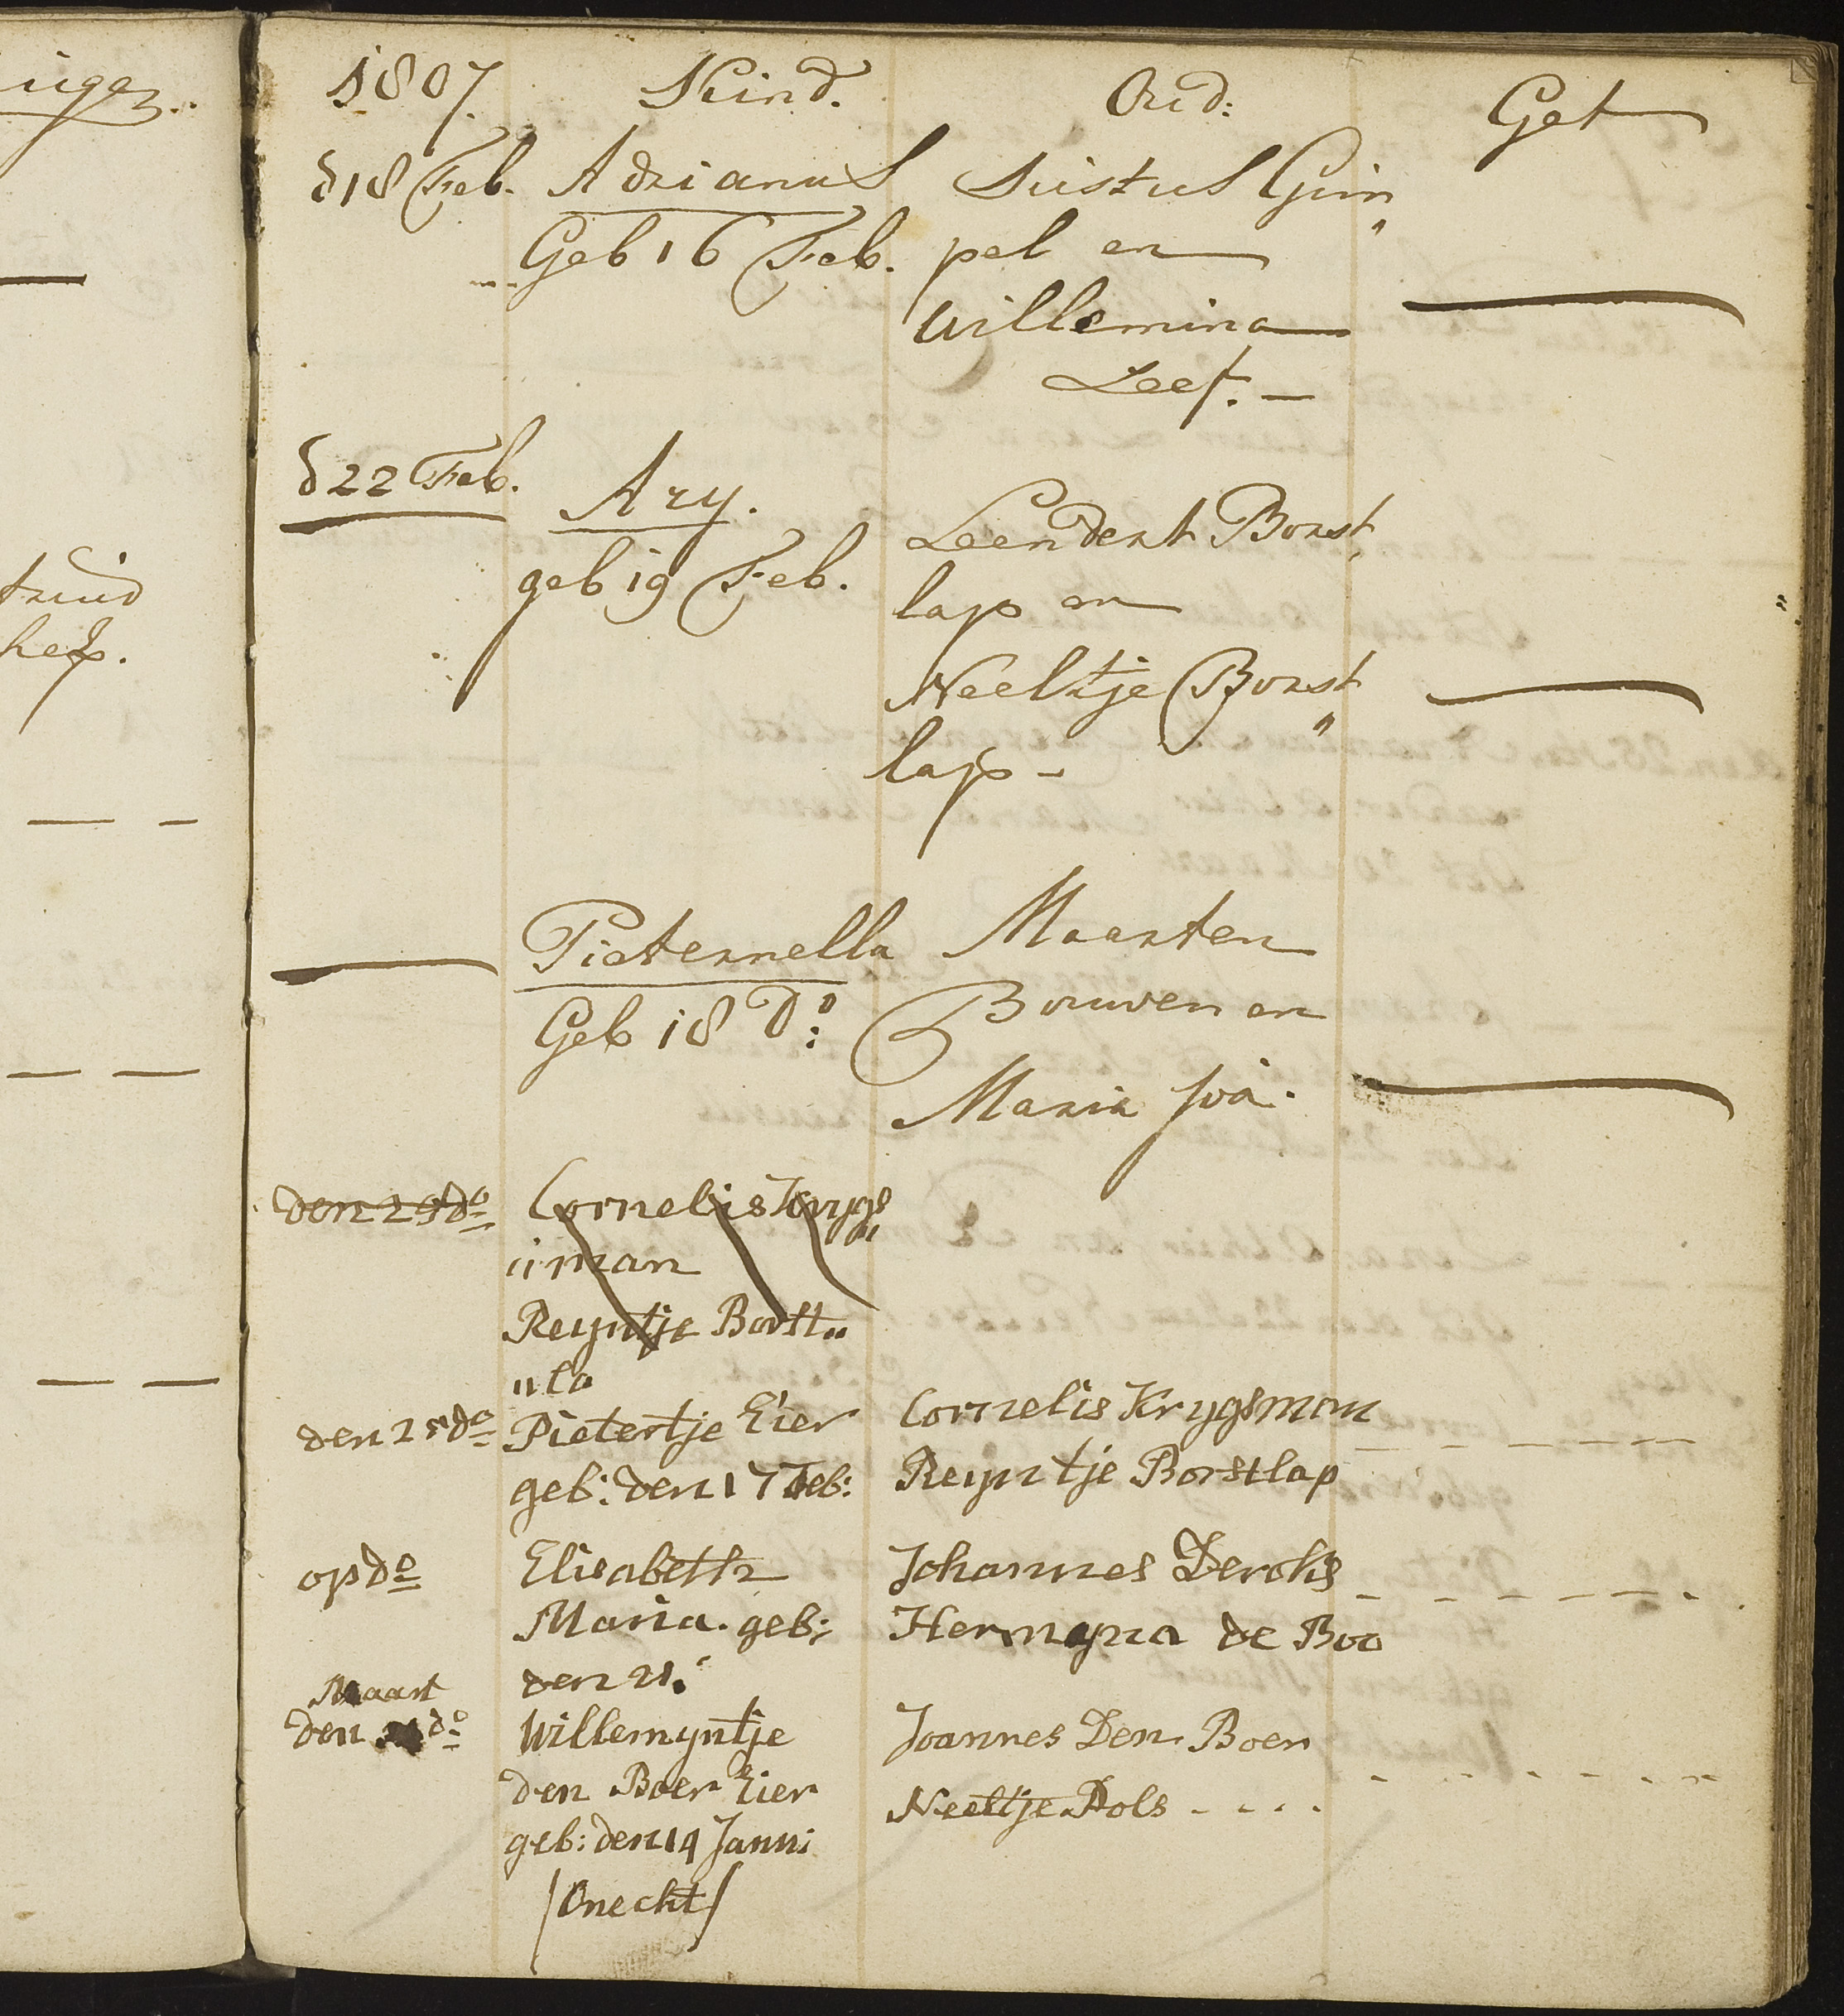 1807. Kind. Oud: Get
d 18 Feb. Adrianus Justus Gim„
Geb 16 Feb. pel en
Willemina
Leef. –
d 22 Feb. Ary. Leendert Borst„
geb 19 Feb. lap en
Neeltje Borst„
lap –
Pieternella Maarten
Geb 18 Do: Bouwen en
Maria
den 29 do Cornelis Krygs„
„man
Reyntje Borst„
„la
den 25 do Pietertje Eier Cornelis Krygsman
geb: den 17 Feb: Reyntje Borstlap
op do Elisabeth Johannes Derchs
Maria. geb: Hermyna de Boo
den 21.
Maart
den do Willemyntje Joannes Den Boer
den Boer Eier Neeltje Pols
geb: den 14 Janu:
/Onecht/